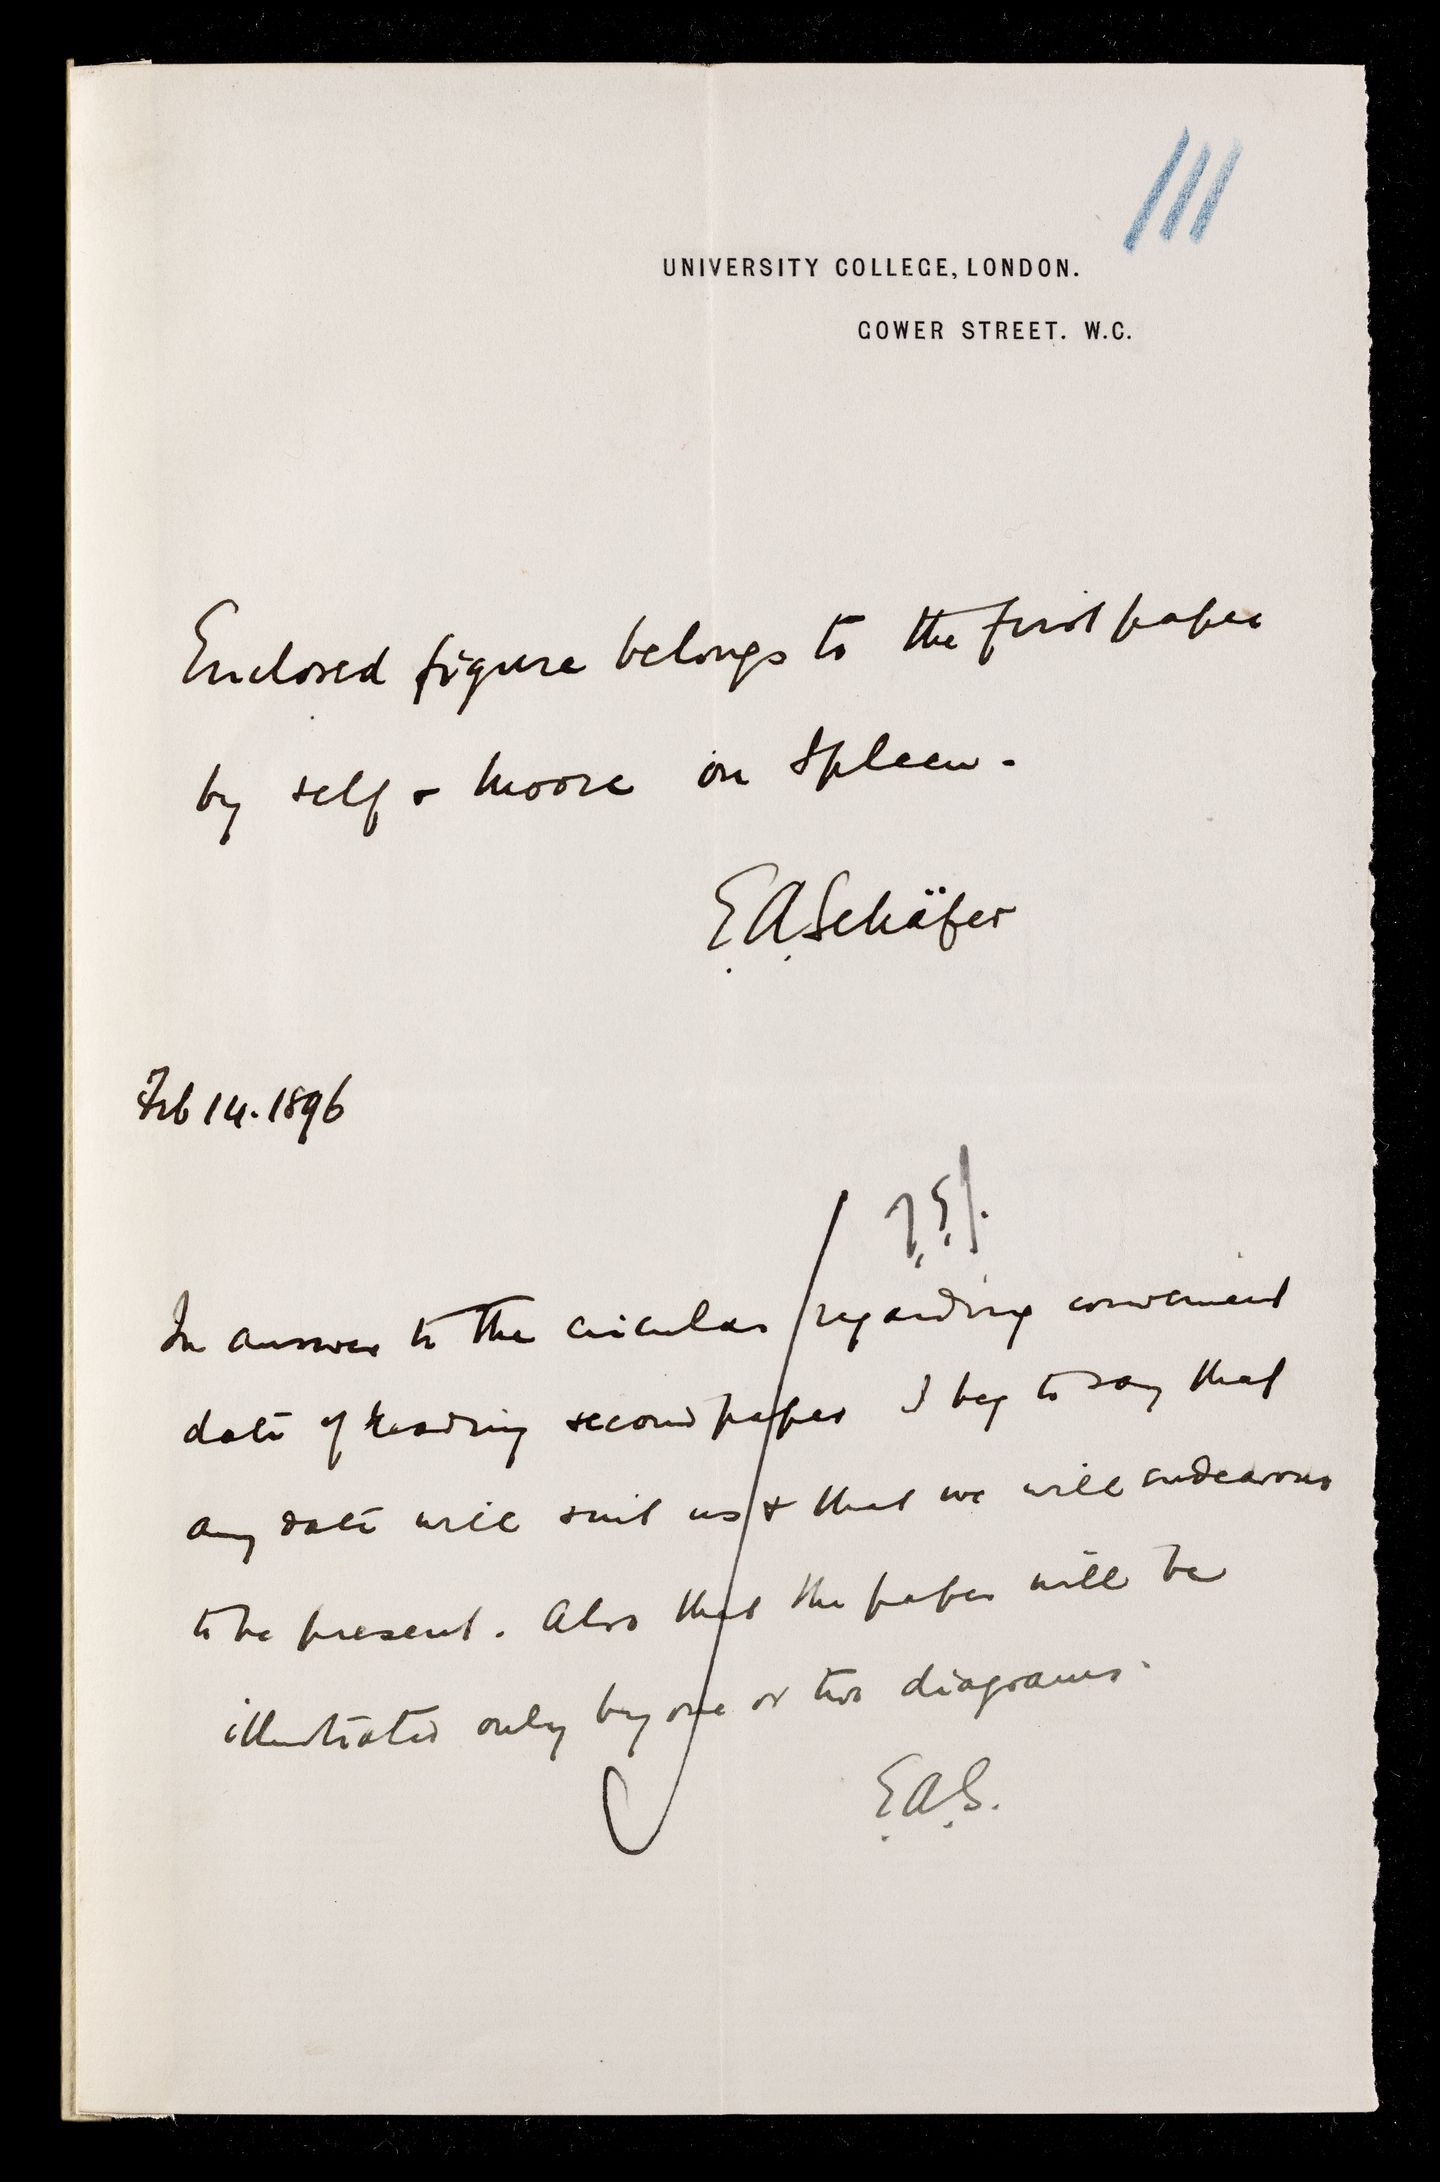 111
UNIVERSITY COLLEGE, LONDON.
GOWER STREET. W.C.
Enclosed figure belongs to the first paper
by self & Moore on Spleen.
E.A.Schäfer
Feb 14. 1896
In answer to the circular regarding convenient
date of reading second paper I beg to say that
any date will suit us & that we will endeavour
to be present. Also that the paper will be
illustrated only by one or two diagrams.
E.A.S.